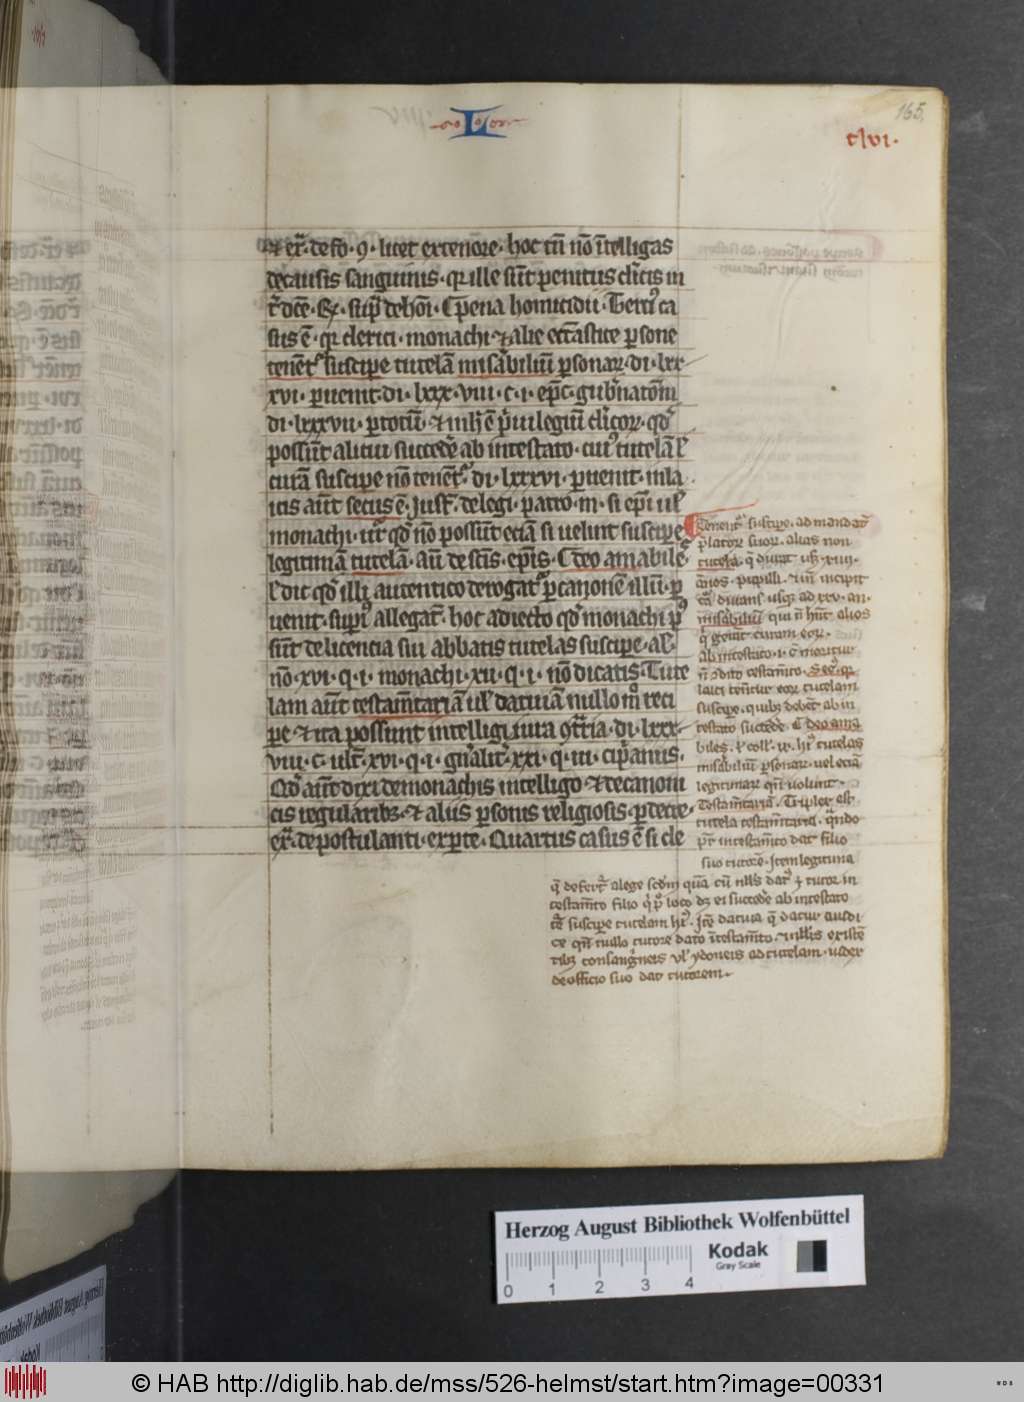 165.
clvi.
L
⁊ ex̄. de fo. 9. licet ex tenore. hoc tn̄ nō ītelligas
de causis sanguinis. qr ille sūt penitus cl̄icis in
t̄ dc̄e. ex. supͣ de hōi. C pena homicidii. Terciꝰ ca
sus ē qr clerici. monachi ⁊ alie eccl̄astice ꝑsone
tenēt suscipe tutelā misabiliū ꝑsonar. di. lxx
xvi. peruenit. di. lxxx.viii. c. i. ep̄c. gub̄natōm
di. lxxxvii. ꝑ totū. ⁊ in h̄ ē p̄uilegiū cl̄icor. qd
possūt alicui succedē ab intestato. cuiꝰ tutelā l̄
curā suscipe nō tenēt. di. lxxxvi. peruenit. in la
icis aūt secus ē. de legi. patro. in. si ep̄i ul̄
monachi. qd nō possūt eciā si uelint suscipe
legitimā tutelā. Aū de sc̄is. ep̄is. C deo amabiles
l̄ dic qd illi autentico derogat̄ ꝑ canonē illū. ꝑ
uenit. supiꝰ allegat̄. hoc adiecto qd monachi pn̄
sūt de licencia sui abbatis tutelas suscipe. al.
nō. xvi. q. i. monachi. xii. q. i. nō dicatis. Tute
lam aūt testam̄tariā ul̄ datiuā nullo mō reci
pe ⁊ ita possunt intelligi iura ꝯtraria. di. lxxx.
viii. c. ult̄. xvi. q. i. gn̄alit̄. xxi. q. iii. cip̄anus.
Qd aūt dixi de monachis intelligo. ⁊ de canoni
cis regularibꝫ. ⁊ aliis ꝑsonis religiosis. ꝑ decre.
ex̄. de postulanti. ex ꝑte. Quartus casus ē si cle
Tenent̄ suscipe. ad mandat̄
p̄lator suor. alias non
tutela. q̄ durat usꝫ xiiii.
annos. pupilli. ⁊ tūc incipit
cā durans usqꝫ ad xxv. an.
misabiliū qui n̄ hn̄t alios
q̄ gerāt curam eor.
ab intestato. i. c̄ moritur
n̄ ꝯdito testam̄to. Secꝰ. qr
laici tenētur eor tutelam
suscipe. quibꝫ debēt ab in
testato succede. C deo ama
biles. l̄ coll. ix. hꝰ tutelas
misabiliū ꝑsonar. uel eciā
legitimar qn̄ uolunt.
Testam̄taria. Triplex est
tutela testam̄taria. q̄ndo
pr̄ in testam̄to dat filio
suo tutorē. Item legitima
q̄ defert̄ a lege scdm qua cū nllꝰ dat̄ ē tutor in
testam̄to filio q̄ pͦ loco dꝫ ei succede ab intestato
tē suscipe tutelam hꝰ. Itē datiua q̄ datur a iudi
ce qn̄ nullo tutore dato ī testam̄to. ⁊ nllis existē
tibꝫ consang̈neis ul̄ ydoneis ad tutelam. iudex
de officio suo dat tutorem.
Herzog August Bibliothek Wolfenbüttel
Kodak
Gray Scale
0 1 2 3 4
© HAB http://diglib.hab.de/mss/526-helmst/start.htm?image=00331